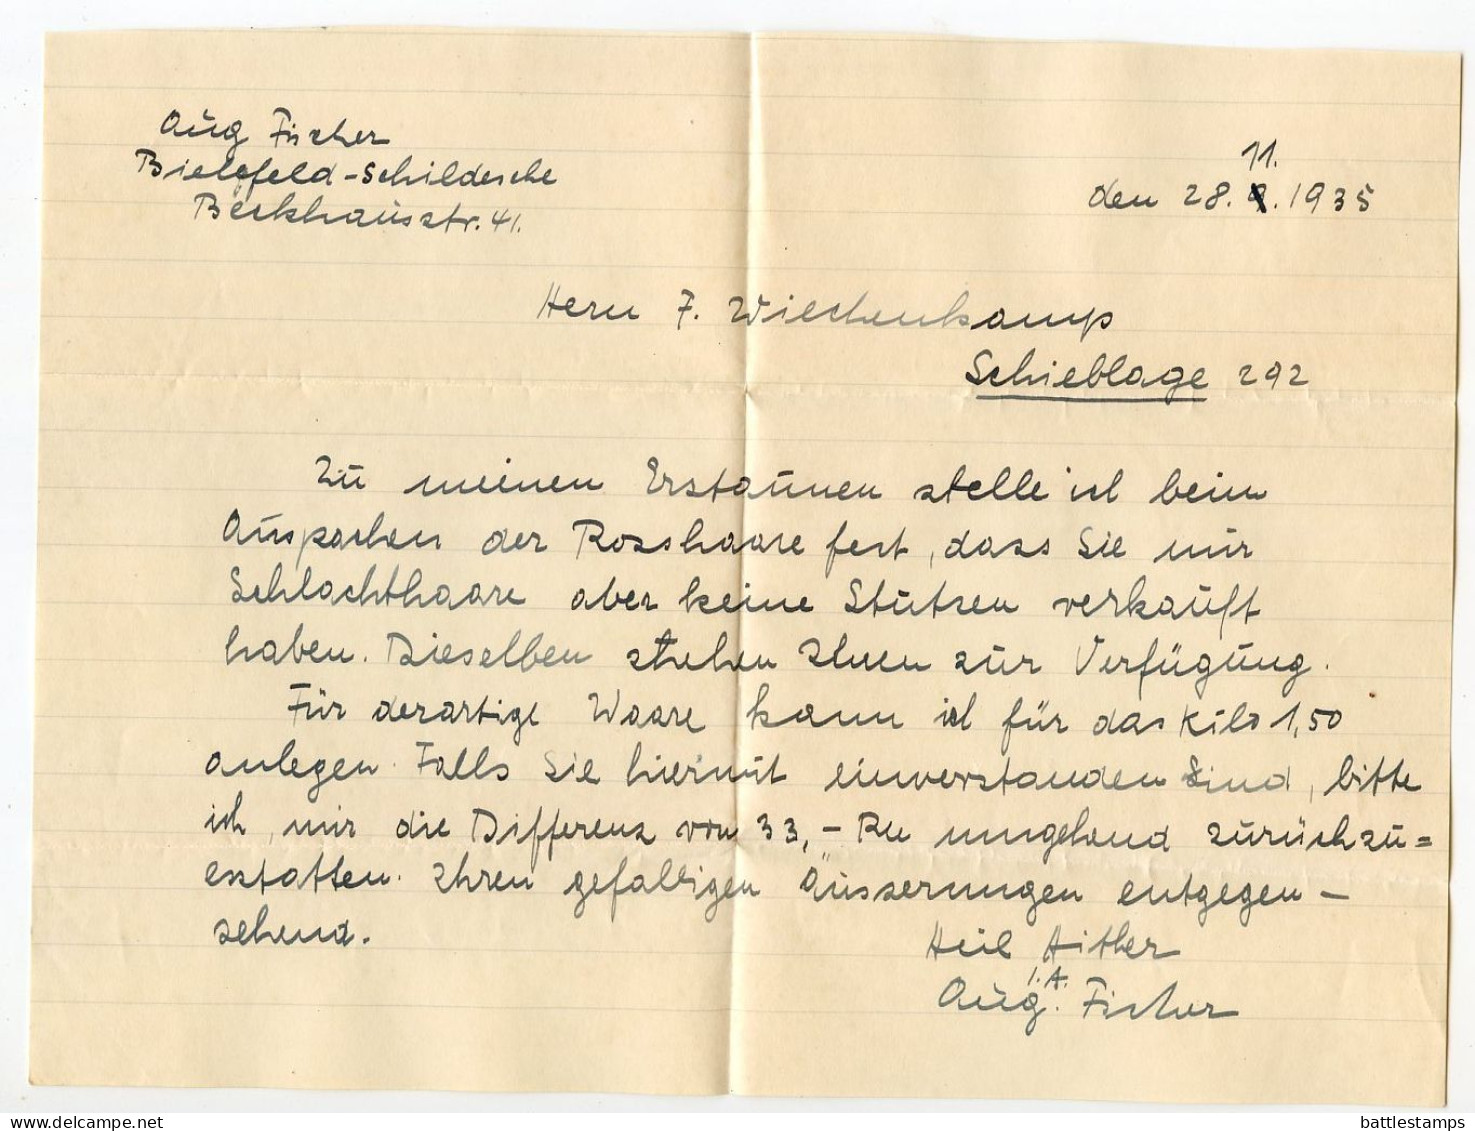 Aug Fischer
Bielefeld-Schildesche
Beckhausstr. 41.
11.
den 28. 9. 1935
Herrn F. Wiechenkamp
Schieblage 292
Zu meinen Erstaunen stelle ich beim
Auspacken der Rosshaare fest, dass Sie mir
Schlachthaare aber keine Stutzen verkauft
haben. Dieselben stehen Ihnen zur Verfügung.
Für derartige Waare kann ich für das Kilo 1,50
anlegen. Falls Sie hiermit einverstanden sind, bitte
ich, mir die Differenz von 33,- RM umgehend zurückzu=
erstatten. Ihren gefälligen Äusserungen entgegen-
sehend.
Heil Hitler
I.A.
Aug. Fischer
delcampe.net
battlestamps